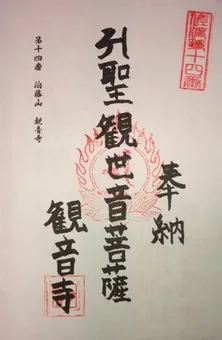 第十四番
奉納
聖観世音菩薩
観音寺
第十四番 観音寺